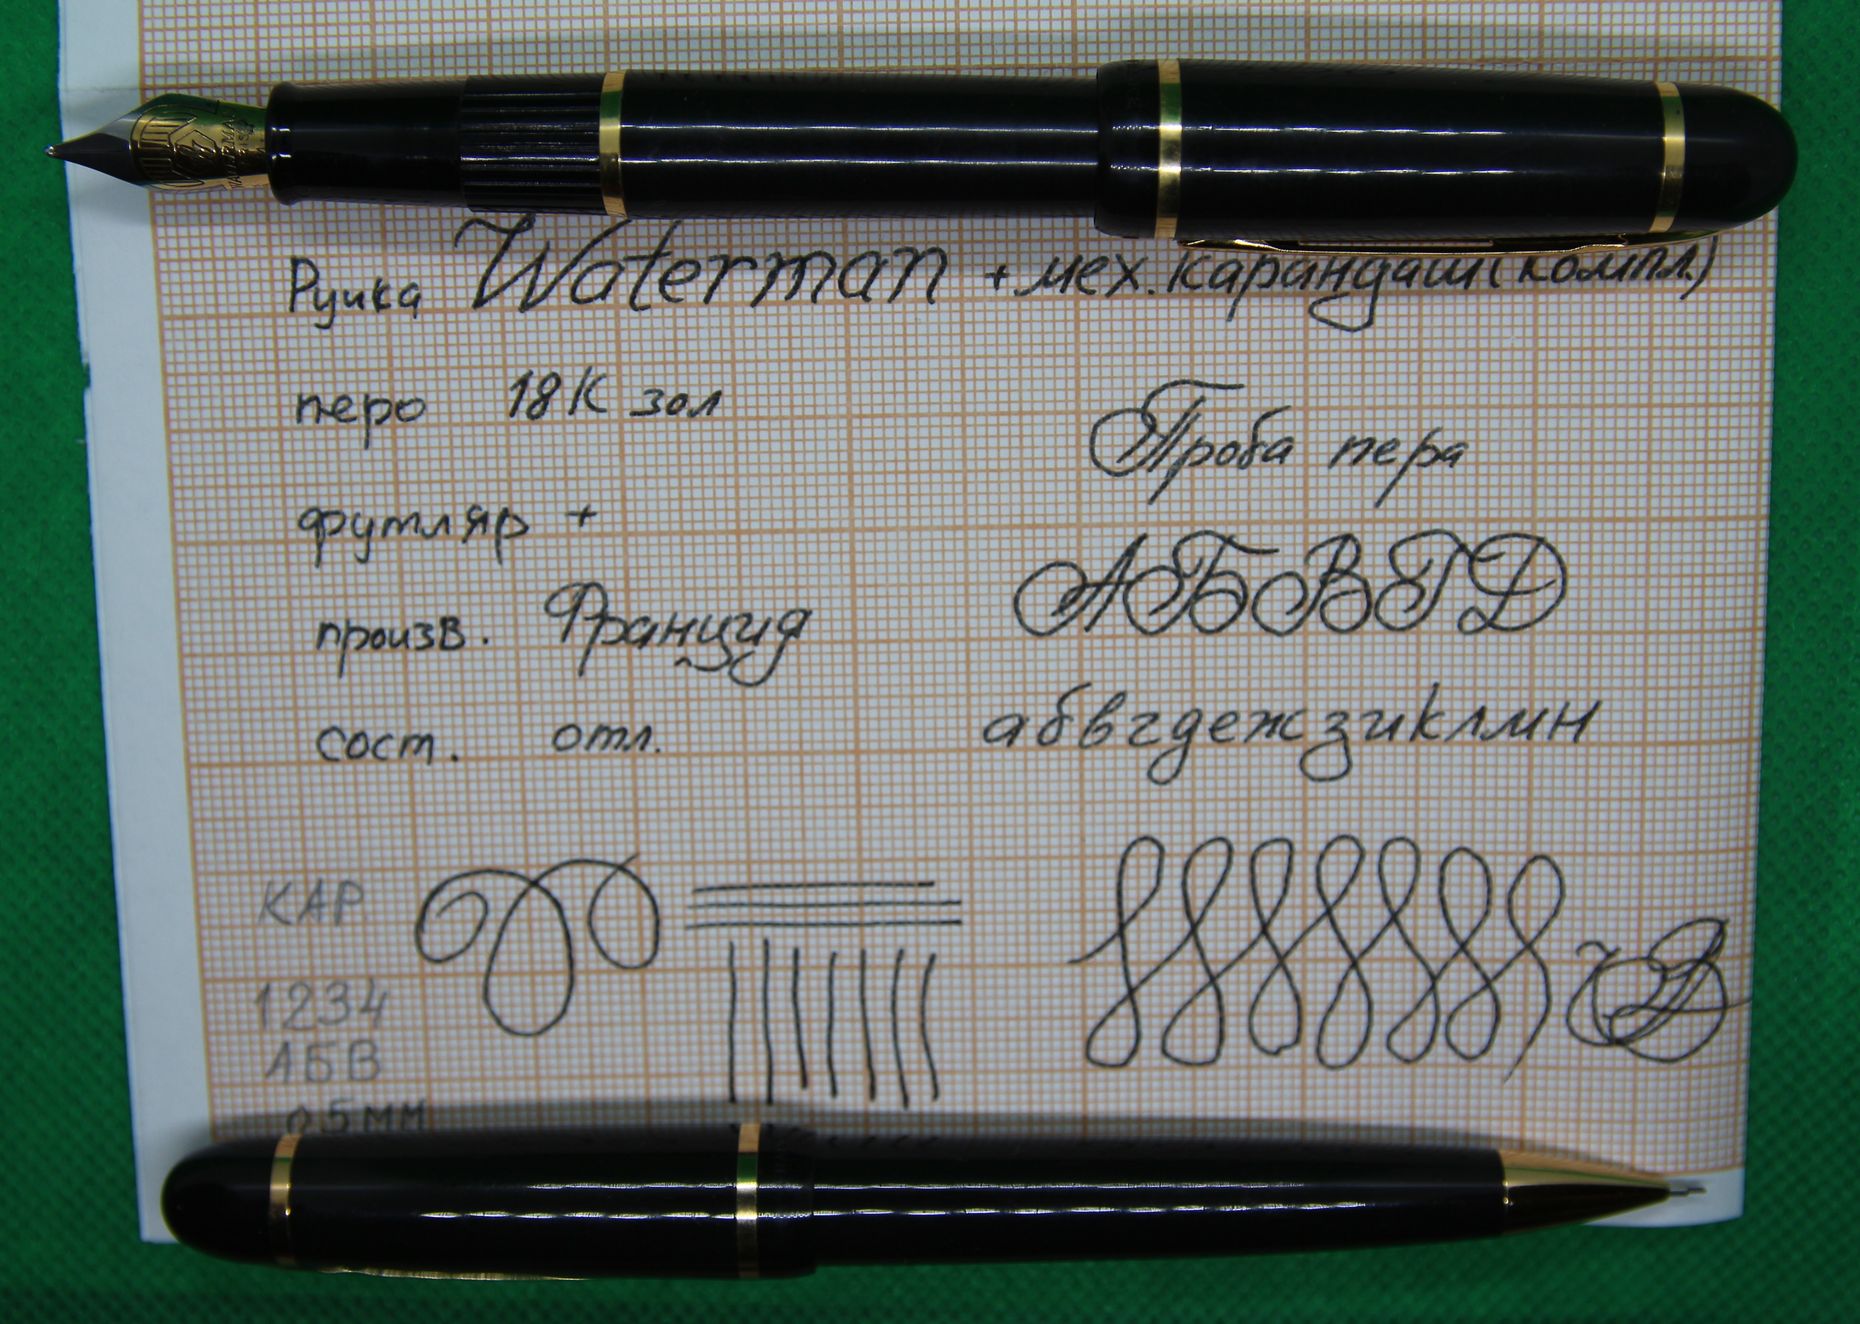 Ручка Waterman + мех. карандаш (компл.)
перо 18К зол
футляр +
произв. Франция
сост. отл.
Проба пера
АБВГД
абвгдежзиклмн
КАР
1234
АБВ
0.5мм
WATERMAN